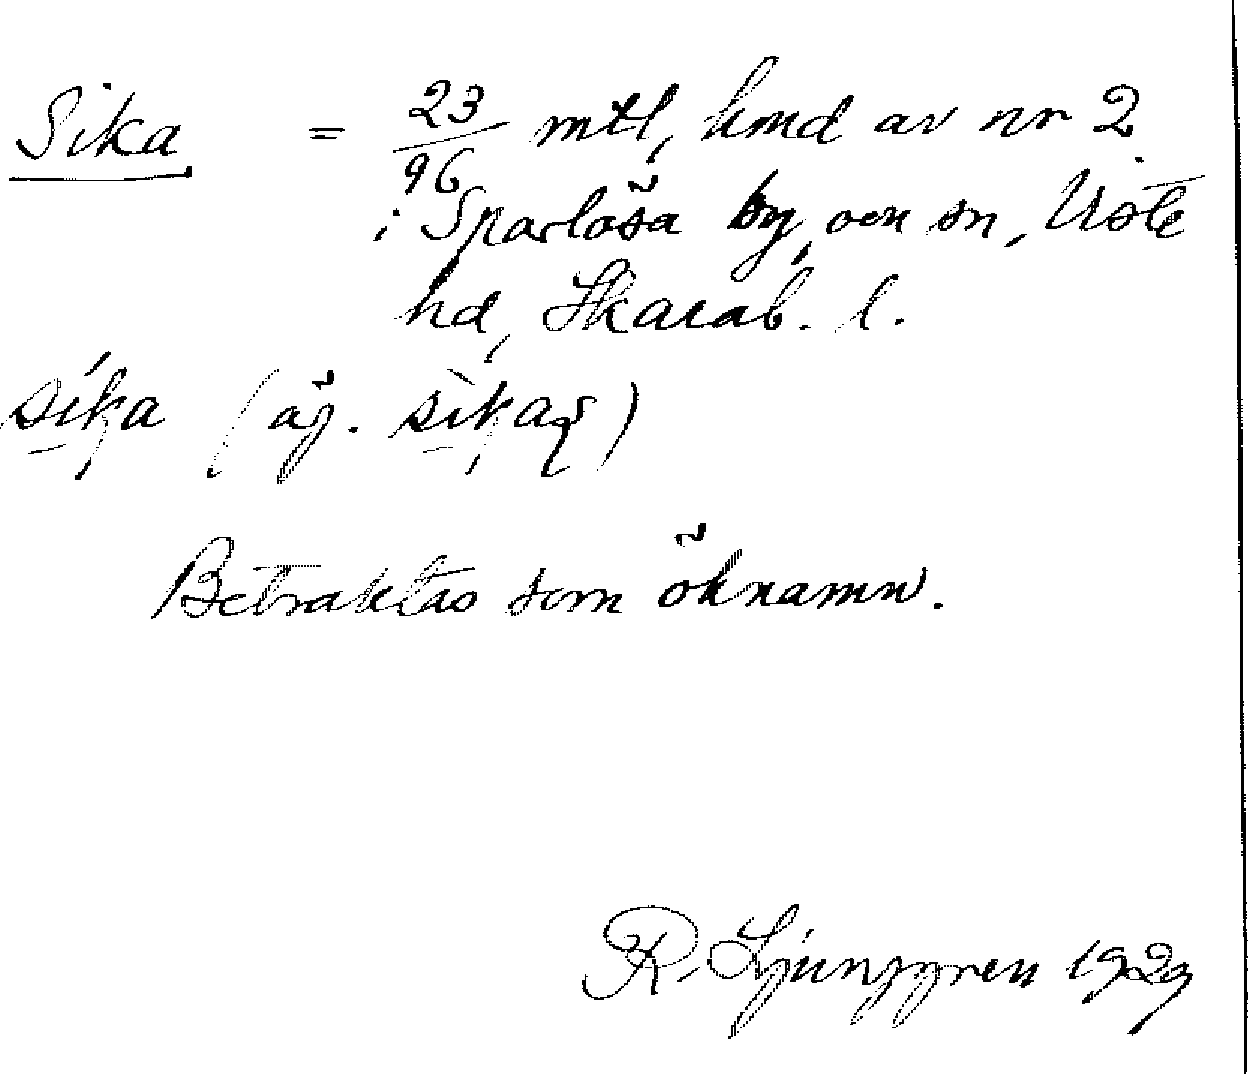 Sika = 23/96 mtl, hmd av nr 2
i Sparlösa by, ocn sn, Viste
hd, Skarab. l.
síka (äg. sìkaʀ)
Betraktas som öknamn.
R. Ljunggren 1929